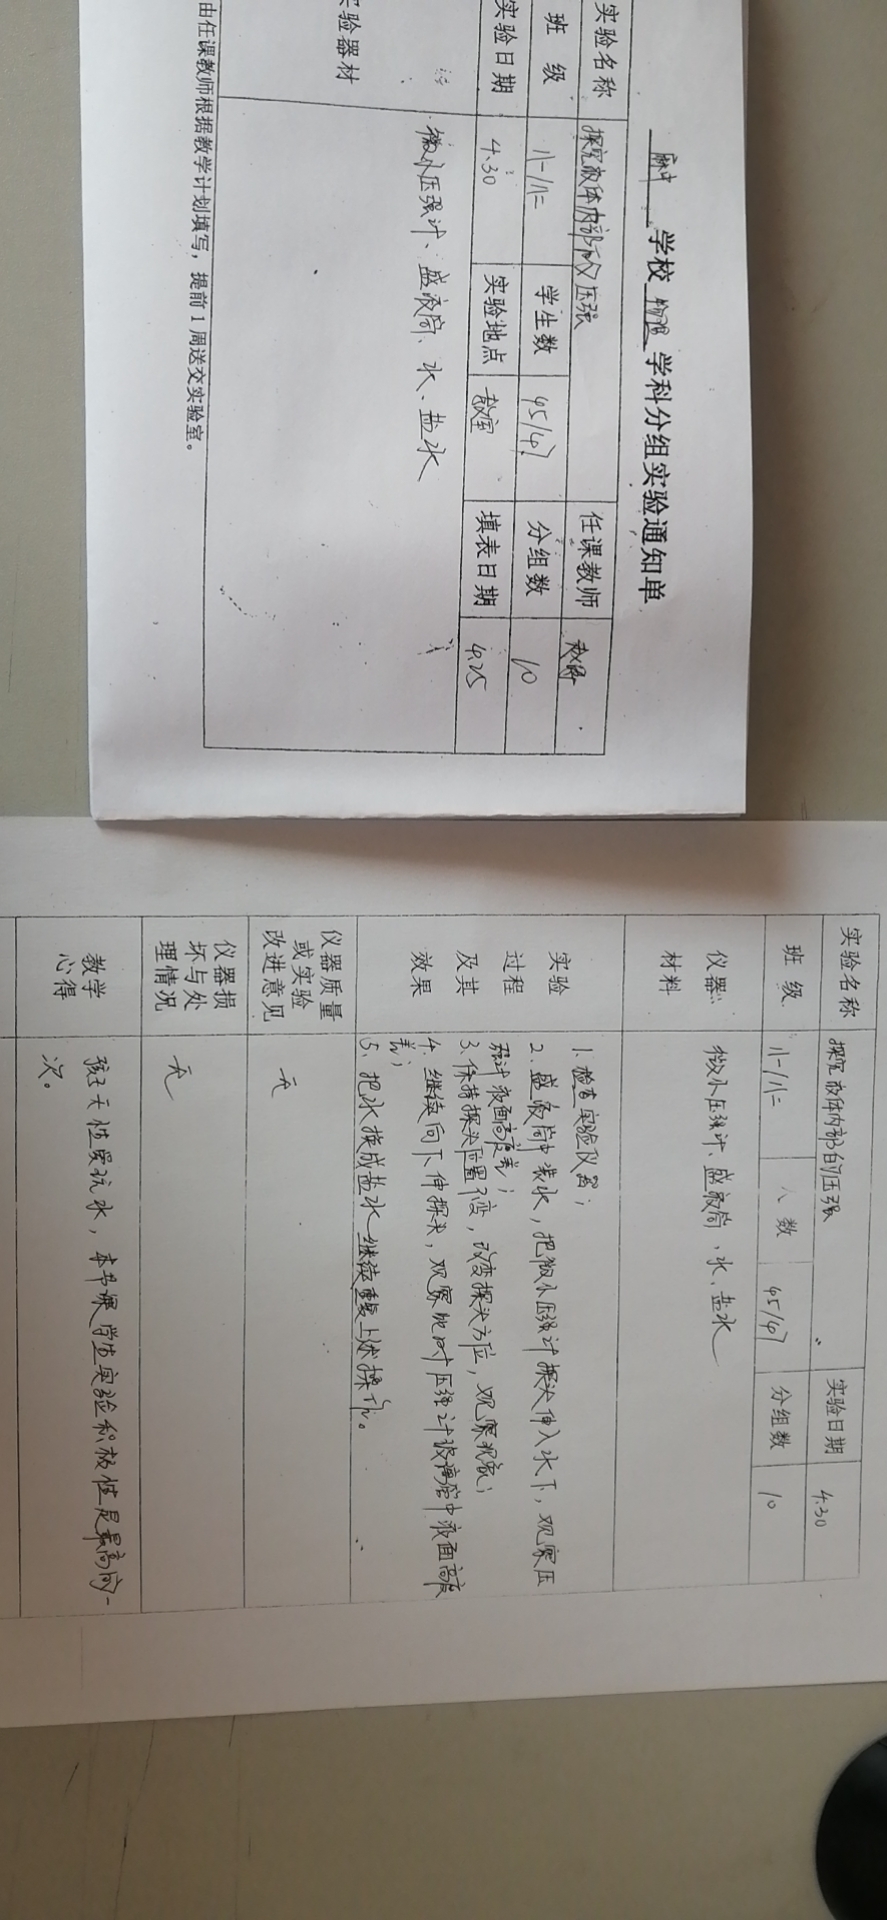 麻中 学校 物理 学科分组实验通知单
实验名称 探究液体内部的压强 任课教师
班 级 八一/八二 学生数 45/47 分组数 10
实验日期 4.30 实验地点 教室 填表日期 4.25
验器材 微小压强计、盛液筒、水、盐水
由任课教师根据教学计划填写，提前1周送交实验室。
实验名称 探究液体内部的压强 实验日期 4.30
班 级 八一/八二 人 数 45/47 分组数 10
仪器
材料
微小压强计、盛液筒、水、盐水
实验
过程
及其
效果
1. 检查实验仪器；
2. 盛液筒中装水，把微小压强计探头伸入水下，观察压
强计液面高度差；
3. 保持探头位置不变，改变探头方位，观察现象；
4. 继续向下伸探头，观察此时压强计玻璃管中液面高度
差；
5. 把水换成盐水继续重复上述操作。
仪器质量
或实验
改进意见
无
仪器损
坏与处
理情况
无
教学
心得
孩子天性爱玩水，本节课学生实验积极性是最高的一
次。